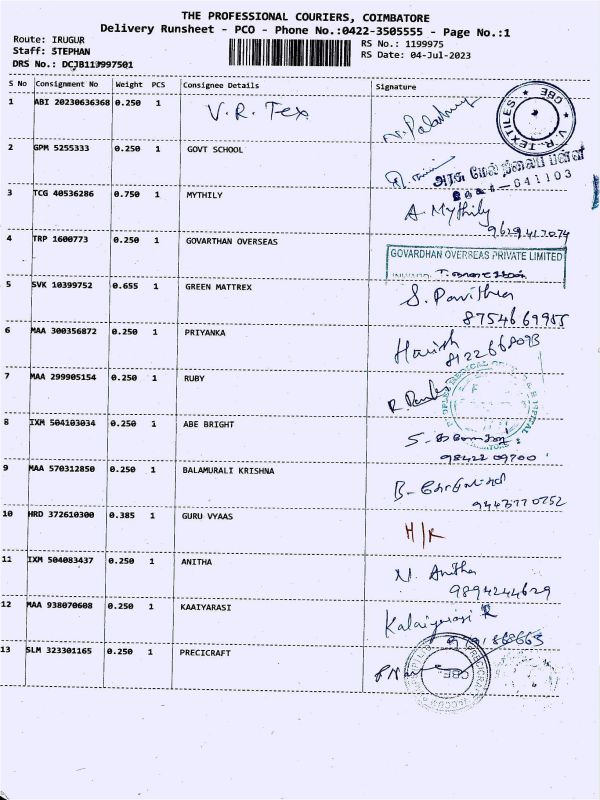 THE PROFESSIONAL COURIERS, COIMBATORE
Delivery Runsheet - PCO - Phone No.:0422-3505555 - Page No.:1
Route: IRUGUR
RS No.: 1199975
Staff: STEPHAN
RS Date: 04-Jul-2023
DRS No.: DCJB119997501
S No Consignment No Weight PCS Consignee Details Signature
1 ABI 20230636368 0.250 1 V.R. Tex
CBE. V.R. TEXTILES
2 GPM 5255333 0.250 1 GOVT SCHOOL
அரசு மேல் நிலைப் பள்ளி
641103
3 TCG 40536286 0.750 1 MYTHILY A. Mythily
4 TRP 1600773 0.250 1 GOVARTHAN OVERSEAS
GOVARDHAN OVERSEAS PRIVATE LIMITED
5 SVK 10399752 0.655 1 GREEN MATTREX S. Pavithra
8754669955
6 MAA 300356872 0.250 1 PRIYANKA Harish
7 MAA 299905154 0.250 1 RUBY
8 IXM 504103034 0.250 1 ABE BRIGHT
9842209700
9 MAA 570312850 0.250 1 BALAMURALI KRISHNA
10 HRD 372610300 0.385 1 GURU VYAAS H/R
11 IXM 504083437 0.250 1 ANITHA N. Anitha
9894244629
12 MAA 938070608 0.250 1 KAAIYARASI Kalaiyarasi R
13 SLM 323301165 0.250 1 PRECICRAFT
CBE.